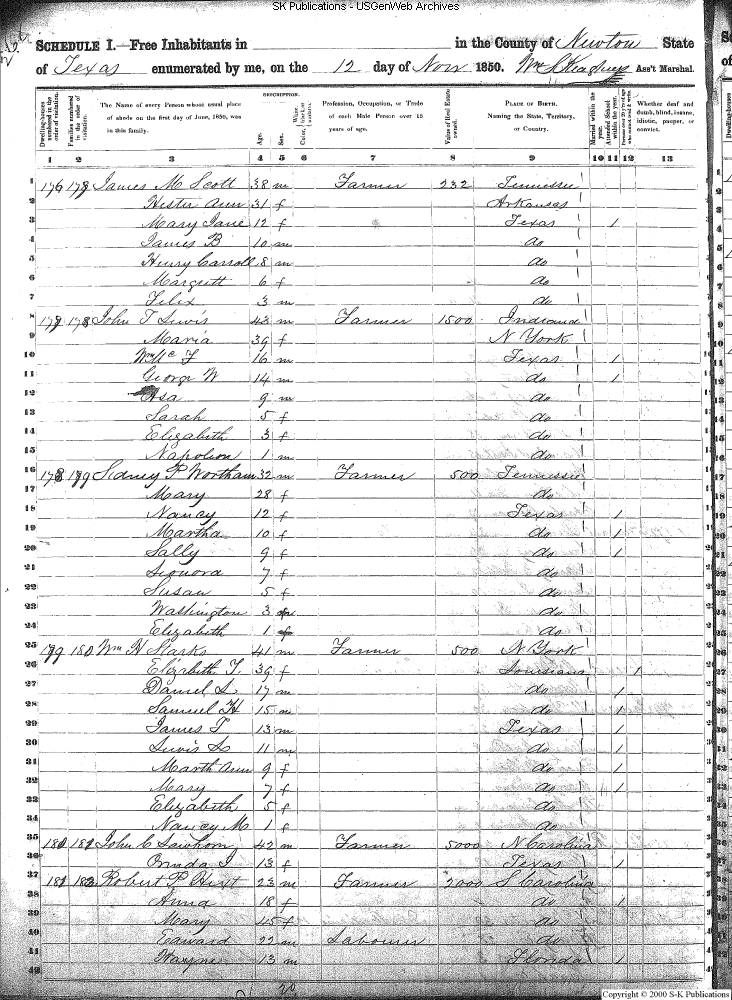 SK Publications - USGenWeb Archives
SCHEDULE I.—Free Inhabitants in in the County of Newton State
of Texas enumerated by me, on the 12 day of Nov 1850. Ass't Marshal.
DESCRIPTION.
Dwelling-houses numbered in the order of visitation.
Families numbered in the order of visitation.
The Name of every Person whose usual place of abode on the first day of June, 1850, was in this family.
Age.
Sex.
Color, White, black, or mulatto.
Profession, Occupation, or Trade of each Male Person over 15 years of age.
Value of Real Estate owned.
PLACE OF BIRTH. Naming the State, Territory, or Country.
Married within the year.
Attended School within the year.
Whether deaf and dumb, blind, insane, idiotic, pauper, or convict.
1 2 3 4 5 6 7 8 9 10 11 12 13
1 176 177 James M Scott 38 m Farmer 232 Tennessee
2 Hester Ann 31 f Arkansas
3 Mary Jane 12 f Texas 1
4 James B 10 m do
5 Henry Carroll 8 m do
6 Margrett 6 f do
7 Felix 3 m do
8 177 178 John T Lewis 43 m Farmer 1500 Indiana
9 Maria 39 f N York
10 16 m Texas 1
11 George W 14 m do 1
12 Asa 9 m do
13 Sarah 5 f do
14 Elizabeth 3 f do
15 Napoleon 1 m do
16 178 179 Sidney P Wortham 32 m Farmer 500 Tennessee
17 Mary 28 f do
18 Nancy 12 f Texas 1
19 Martha 10 f do 1
20 Sally 9 f do 1
21 7 f do
22 Susan 5 f do
23 Washington 3 m do
24 Elizabeth 1 f do
25 179 180 Wm H Starks 41 m Farmer 500 N York
26 Elizabeth T. 39 f Louisiana 1
27 Daniel L 17 m do 1
28 Samuel H 15 m do 1
29 James T 13 m Texas 1
30 Lewis L 11 m do 1
31 Marth Ann 9 f do 1
32 Mary 7 f do 1
33 Elizabeth 5 f do
34 Nancy M 1 f do
35 John C 42 m Farmer 5000 N Carolina
36 13 f Texas 1
37 Robert P 23 m Farmer S Carolina
38 Anna 18 f do 1
39 Mary 45 f do
40 Edward 22 m Labourer do
41 Wayne 13 m Florida 1
42
Copyright © 2000 S-K Publications